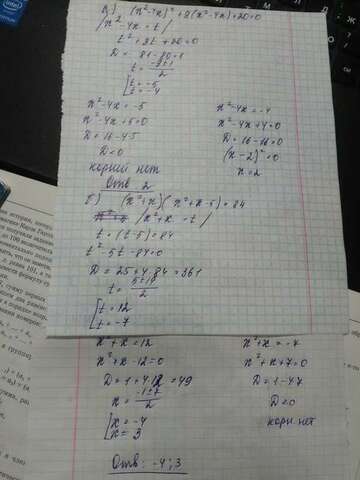 а) (x²-4x)²+9(x²-4x)+20=0
/x²-4x=t/
t²+9t+20=0
D=81-80=1
t=-9±1/2
[t=-5
[t=-4
x²-4x=-5
x²-4x+5=0
D=16-4·5
D<0
корней нет
x²-4x=-4
x²-4x+4=0
D=16-16=0
(x-2)²=0
x=2
Отв 2
б) (x²+x)(x²+x-5)=84
/x²+x=t/
t=(t-5)=84
t²-5t-84=0
D=25+4·84=361
t=5±19/2
[t=12
[t=-7
x²+x=12
x²+x-12=0
D=1+4·12=49
x=-1±7/2
[x=-4
[x=3
x²+x=-7
x²+x+7=0
D=1-4·7
D<0
корн нет
Отв: -4; 3